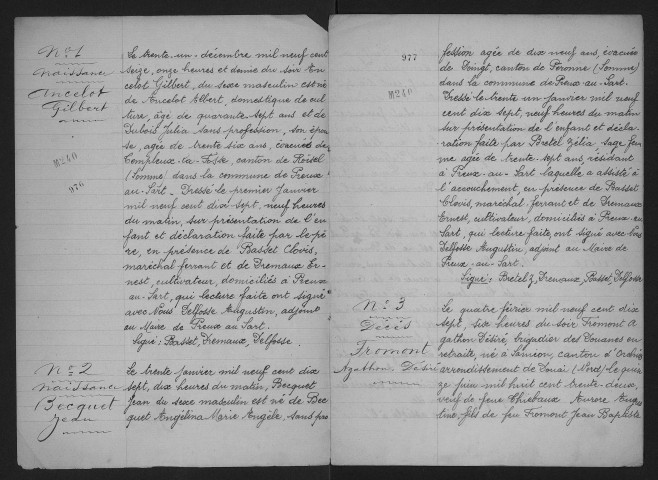 No 1
Naissance
Ancelot
Gilbert
M240
976
Le trente-un décembre mil neuf cent
seize, onze heures et demie du soir An-
celot Gilbert, du sexe masculin est né
de Ancelot Albert, domestique de cul-
ture, âgé de quarante-sept ans et de
Dubois Julia sans profession, son épou-
se, agée de trente six ans, évacués de
Templeux-la-Fosse, canton de Roisel
(Somme) dans la commune de Preux-
au-Sart - Dressé le premier janvier
mil neuf cent dix sept, neuf heures
du matin, sur présentation de l'en-
fant et déclaration faite par le pè-
re, en présence de Basset Clovis,
maréchal ferrant et de Dremaux Er-
nest, cultivateur, domiciliés à Preux-
au-Sart, qui lecture faite ont signé
avec Nous Delfosse Augustin, adjoint
au Maire de Preux au Sart.
Signé: Basset, Dremaux, Delfosse.
No 2
Naissance
Becquet
Jean
Le trente janvier mil neuf cent dix
sept, dix heures du matin, Becquet
Jean du sexe masculin est né de Bec
quet Angélina Marie Angèle, sans pro
977
M240
fession agée de dix neuf ans, évacuée
de Doingt, canton de Péronne (Somme)
dans la commune de Preux-au-Sart.
Dressé le trente un janvier mil neuf
cent dix sept, neuf heures du matin
sur présentation de l'enfant et décla-
ration faite par Bretel Zélia, sage fem
me agée de trente-sept ans, résidant
à Preux-au-Sart laquelle a assisté à
l'accouchement, en présence de Basset
Clovis, maréchal-ferrant et de Dremaux
Ernest, cultivateur, domiciliés à Preux-au
Sart, qui lecture faite, ont signé avec Nous
Delfosse Augustin, adjoint au Maire de
Preux-au-Sart.
Signé: Bretel Z, Dremaux, Basset, Delfosse.
No 3
Décès
Fromont
Agathon Désiré
Le quatre février mil neuf cent dix
sept, six heures du soir Fromont A
gathon Désiré, brigadier des Douanes en
retraite, né à Saméon, canton d'Orchies
arrondissement de Douai (Nord), le quin
ze juin mil huit cent trente-deux,
veuf de feue Thiébaux Aurore Augus
tine, fils de feu Fromont Jean Baptiste